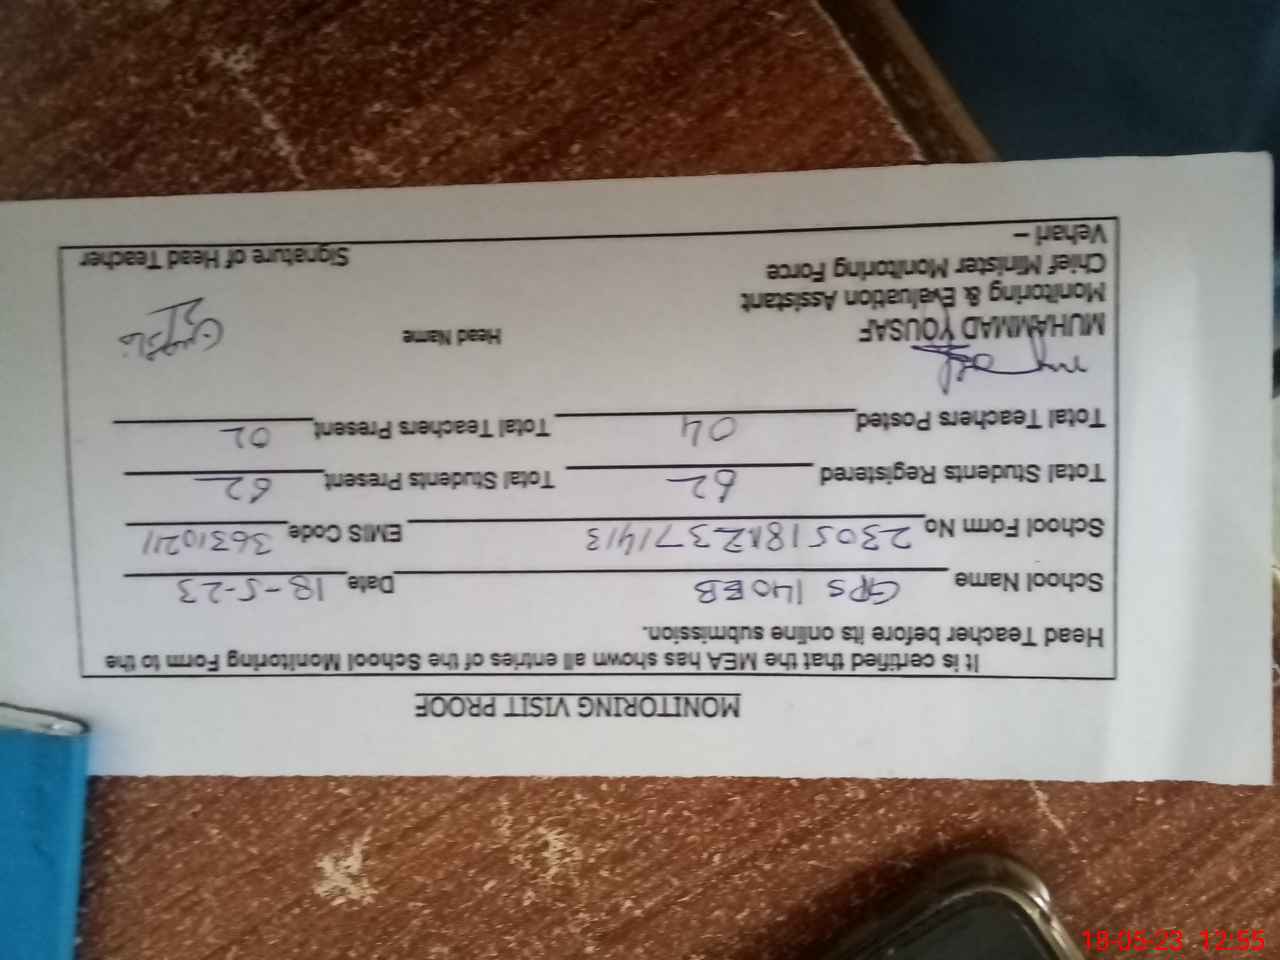 MONITORING VISIT PROOF
It is certified that the MEA has shown all entries of the School Monitoring Form to the
Head Teacher before its online submission.
School Name GPS 140EB Date 18-5-23
School Form No 230518123714413 EMIS Code 36310211
Total Students Registered 62 Total Students Present 62
Total Teachers Posted 04 Total Teachers Present 02
MUHAMMAD YOUSAF Head Name
Monitoring & Evaluation Assistant
Chief Minister Monitoring Force
Vehari – Signature of Head Teacher
18-05-23 12:55